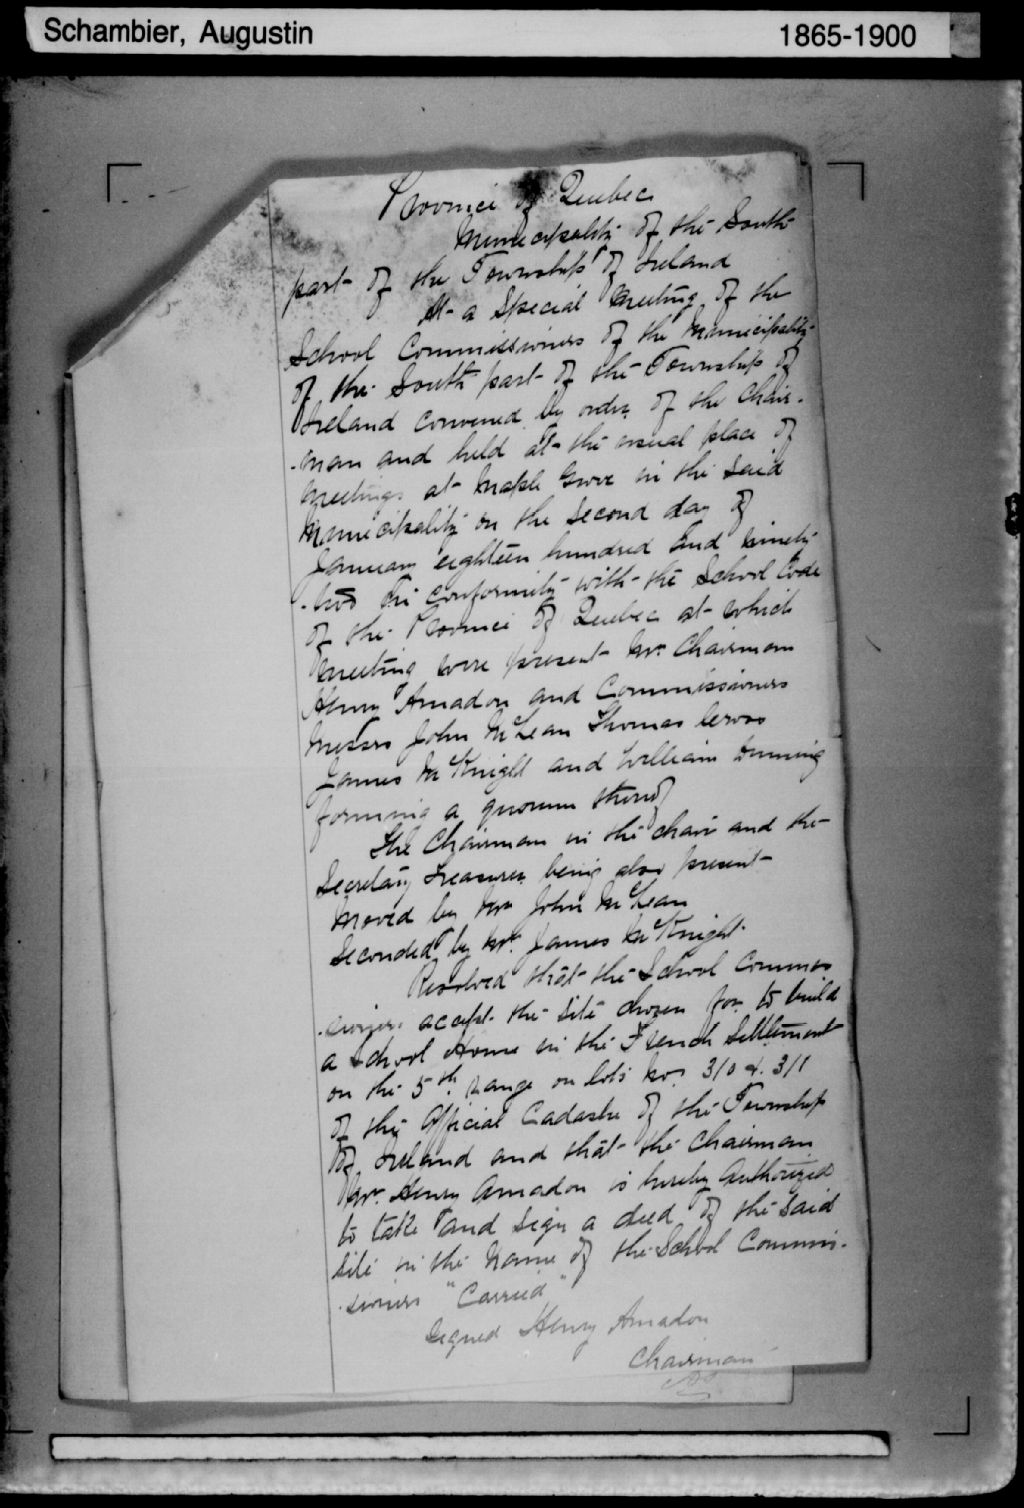 Schambier, Augustin 1865-1900
Province of Quebec
Municipality of the South
part of the Township of Ireland
At a Special meeting of the
School Commissioners of the Municipality
of the South part of the Township of
Ireland convened by order of the Chair-
-man and held at the usual place of
meetings at Maple Grove in the said
Municipality on the second day of
January eighteen hundred and ninety
-two in conformity with the School Code
of the Province of Quebec at which
meeting were present Mr. Chairman
Henry Amadon and Commissioners
Messrs John McLean Thomas
James McKnight and William Dunning
forming a quorum thereof
The Chairman in the chair and the
Secretary Treasurer being also present
Moved by Mr John McLean
Seconded by Mr. James McKnight
Resolved that the School Commis
-sioners accept the site chosen for to build
a School House in the French Settlement
on the 5th Range on lots Nos 310 & 311
of the Official Cadastre of the Township
of Ireland and that the Chairman
Mr. Henry Amadon is hereby Authorized
to take and sign a deed of the said
site in the Name of the School Commis-
-sioners "Carried"
Signed Henry Amadon
Chairman